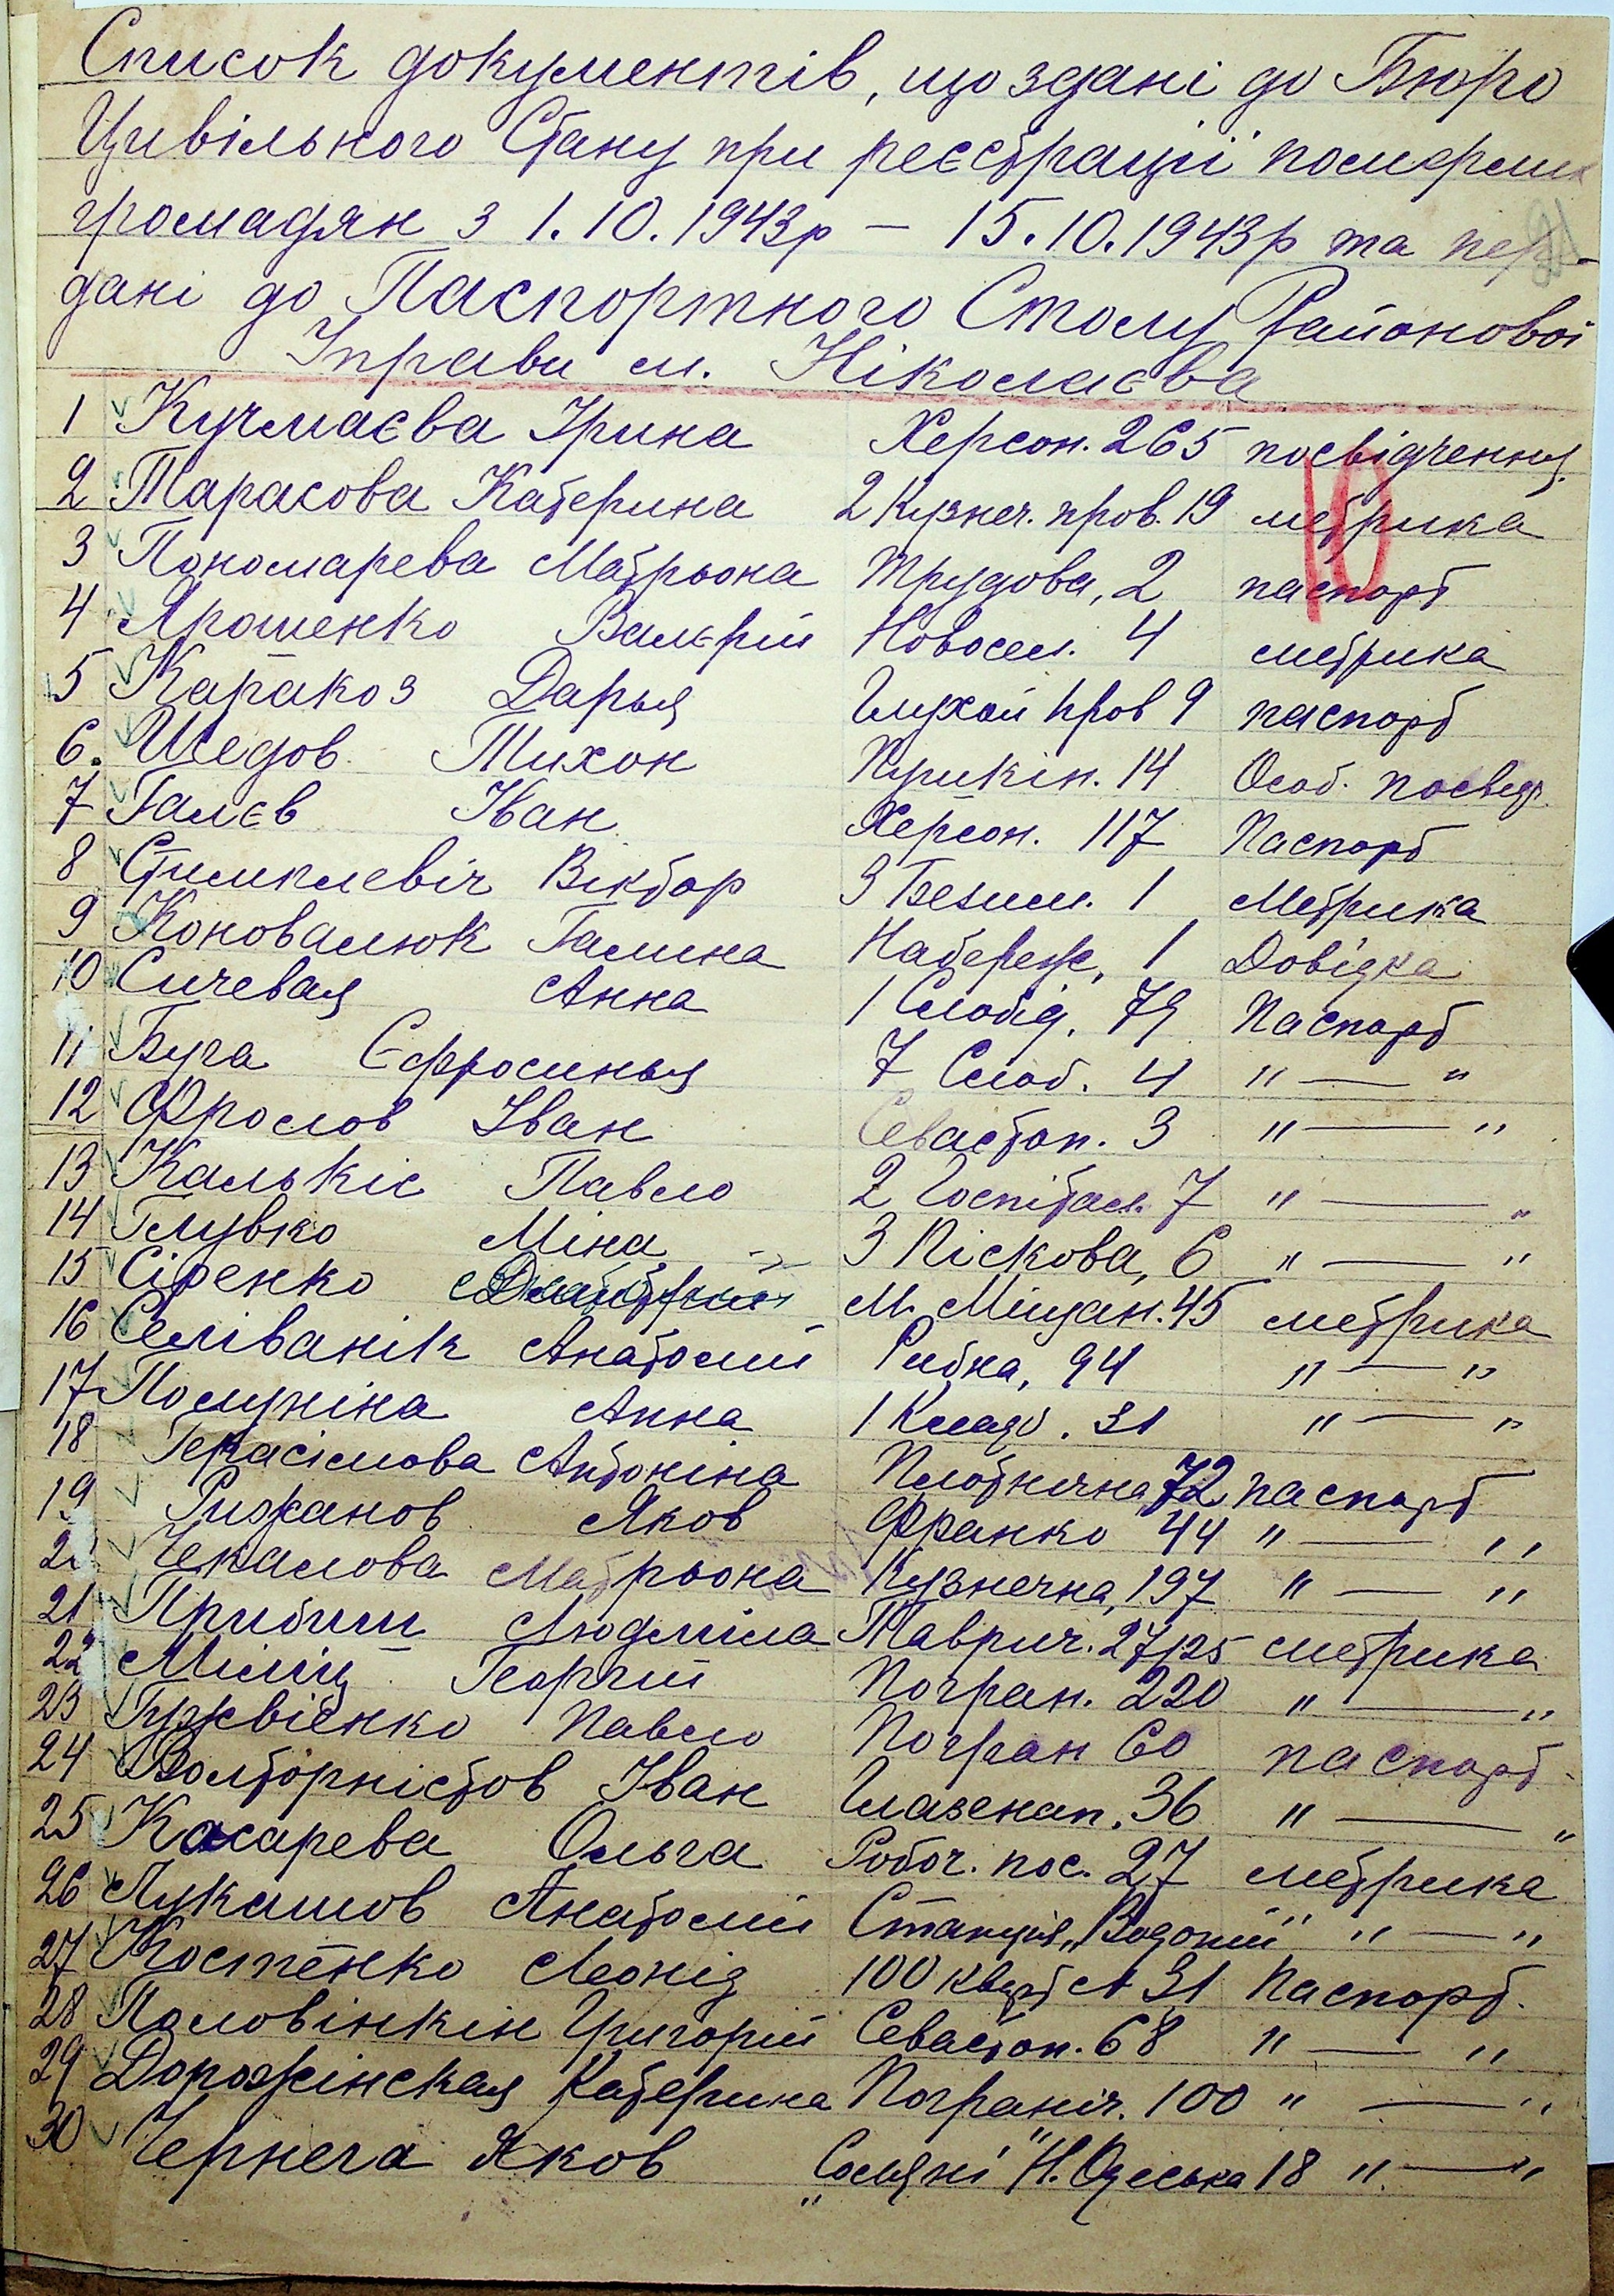 Список документів, що здані до Бюро
Цивільного Стану при реєстрації померлих
громадян з 1.10.1943р – 15.10.1943р та пере-
дані до Паспортного Столу Районової
Управи м. Ніколаєва
1 Кучмаєва Ірина Херсон. 265 посвідчення
2 Тарасова Катерина 2 Кузнеч. пров. 19 метрика
3 Пономарева Матрьона Трудова, 2 паспорт
4 Ярошенко Валєрій Новосел. 4 метрика
5 Каракоз Дарья Глухой пров 9 паспорт
6. Шедов Тихон Пушкін. 14 Особ. посвідч.
7 Галєв Іван Херсон. 117 Паспорт
8 Віктор 3 Безим. 1 Метрика
9 Коновалюк Галина Набереж, 1 Довідка
10 Сичевая Анна 1 Слобід. 79 Паспорт
11 Буга Єфросинья 7 Слоб. 4 " — "
12 Фролов Іван Севастоп. 3 " — "
13 Калькіс Павло 2 Госпітал. 7 " — "
14 Глувко Міна 3 Піскова, 6 " — "
15 Сіренко М. Міщан. 45 метрика
16 Селіванік Анатолий Рибна, 94 " — "
17 Полуніна Анна 1 Кладб. 31 " — "
18 Герасімова Антоніна Плотнична, 72 паспорт
19 Рижанов Яков Франко 44 " — "
20 Чекалова Матрьона Кузнечна, 197 " — "
21 Прибиш Людміла Таврич. 27/25 метрика
22 Георгій Погран. 220 " — "
23 Гужвієнко Павло Погран 60 паспорт
24 Волторністов Іван Глазенап. 36 " — "
25 Косарева Ольга Робоч. пос. 27 метрика
26 Лукашов Анатолий Станція „Водопій" " — "
27 Костенко Леонід 100 кварт А 31 Паспорт.
28 Половінкін Григорій Севастоп. 68 " — "
29 Дорожінская Катерина Погранич. 100 " — "
30 Чернега Яков „Соляні" Н. Одеська 18 " — "
10